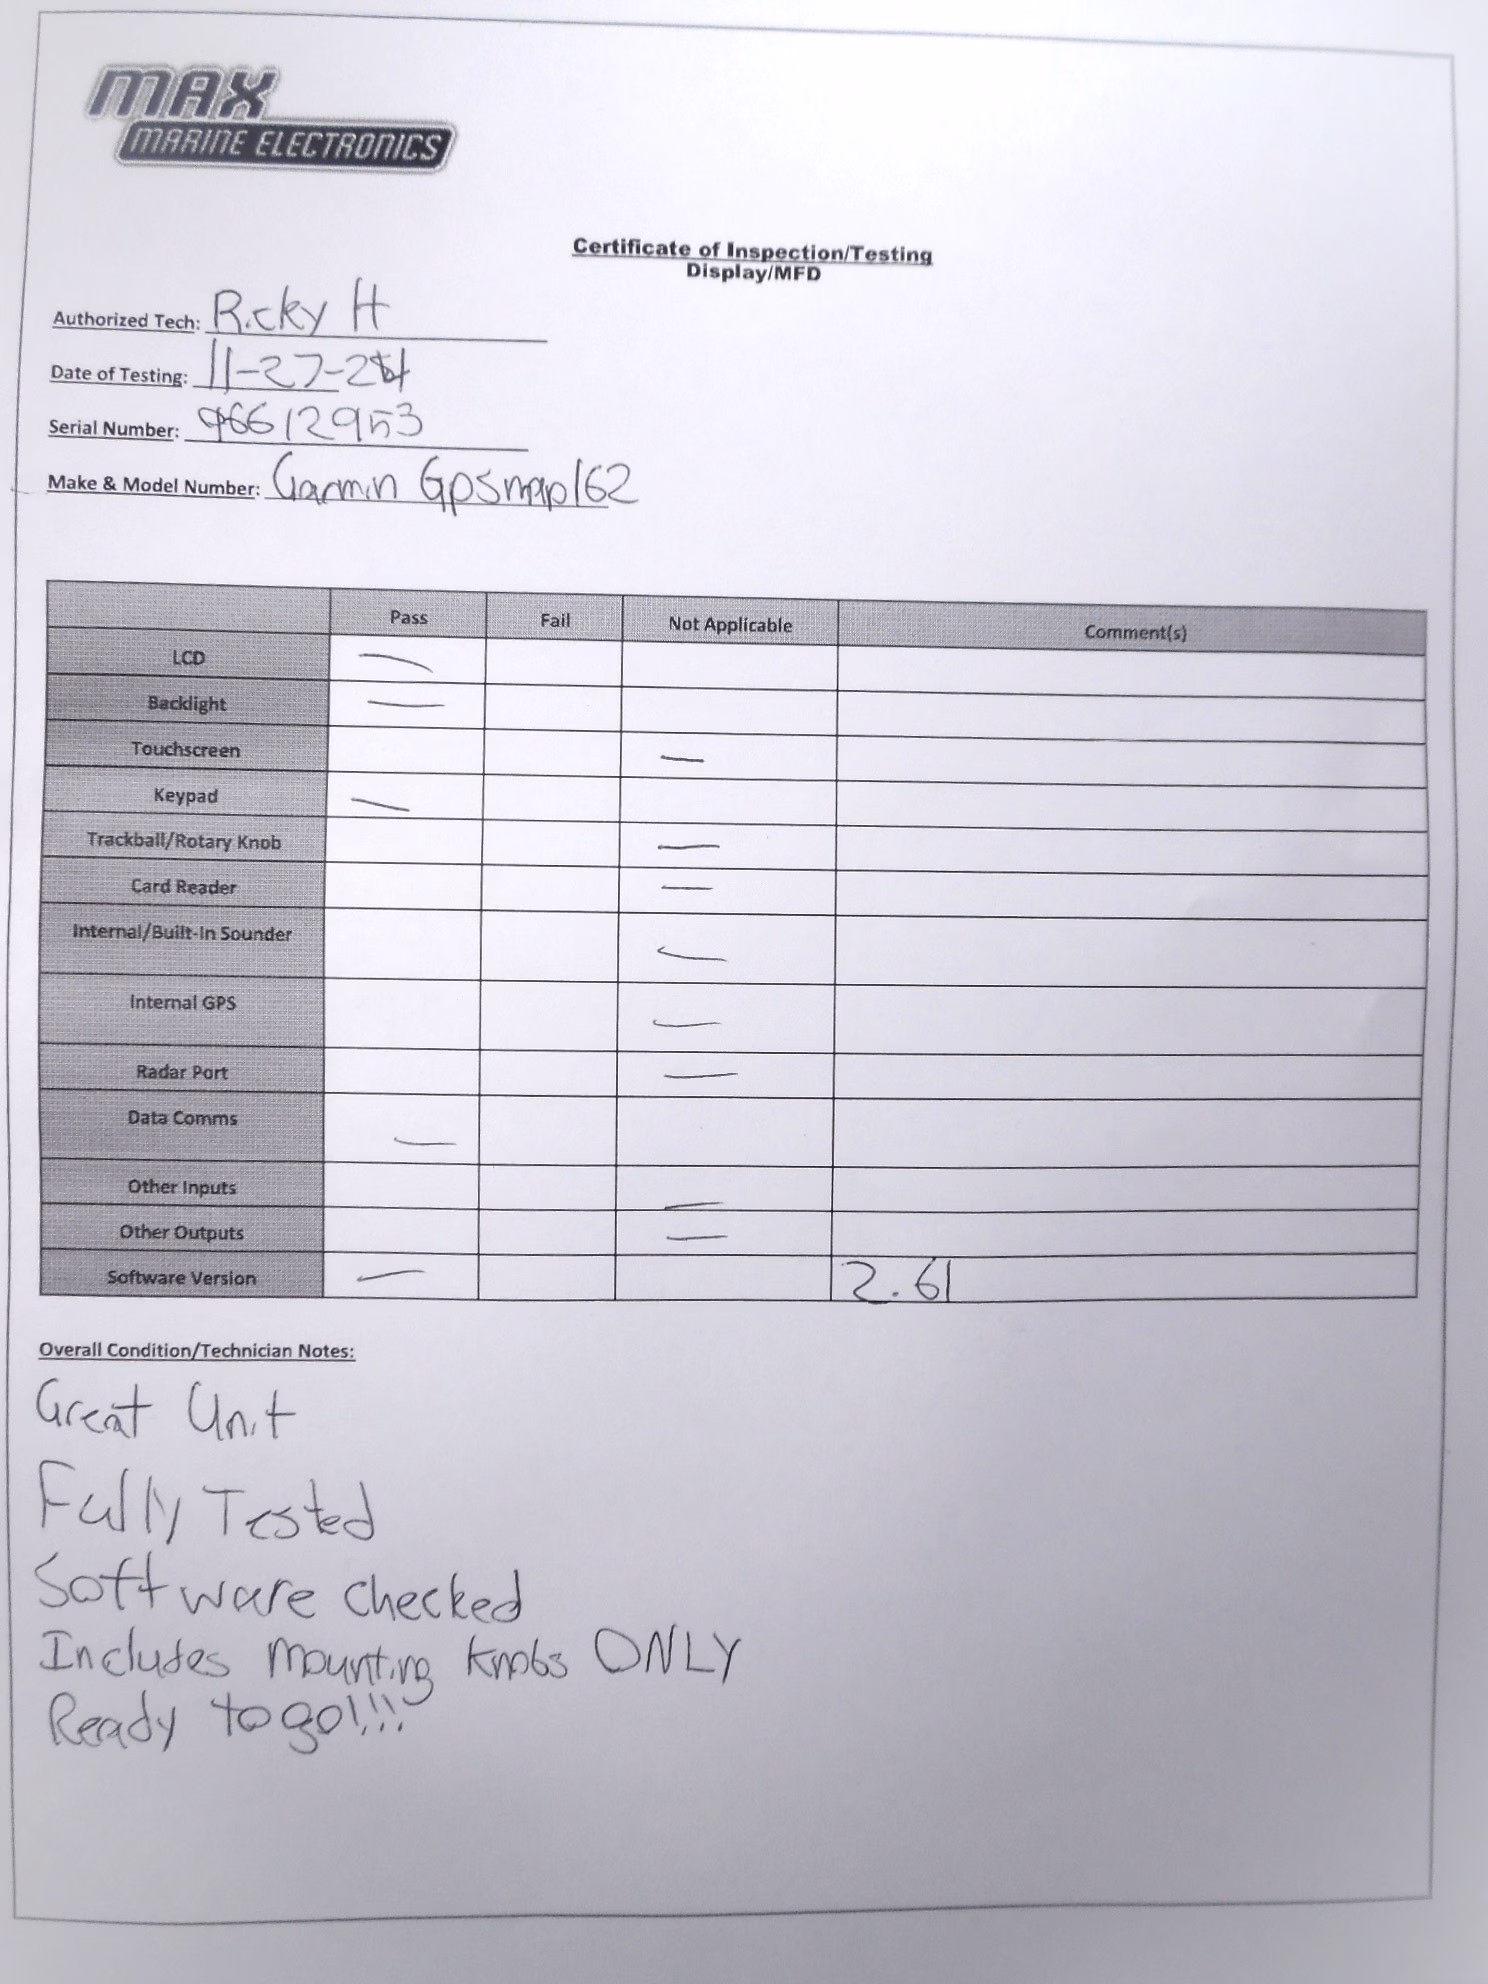 MAX
MARINE ELECTRONICS
Certificate of Inspection/Testing
Display/MFD
Authorized Tech: Ricky H
Date of Testing: 11-27-24
Serial Number: 96612953
Make & Model Number: Garmin Gpsmap162
Pass Fail Not Applicable Comment(s)
LCD —
Backlight —
Touchscreen —
Keypad —
Trackball/Rotary Knob —
Card Reader —
Internal/Built-In Sounder —
Internal GPS —
Radar Port —
Data Comms —
Other Inputs —
Other Outputs —
Software Version — 2.61
Overall Condition/Technician Notes:
Great Unit
Fully Tested
Software checked
Includes mounting knobs ONLY
Ready to go!!!!